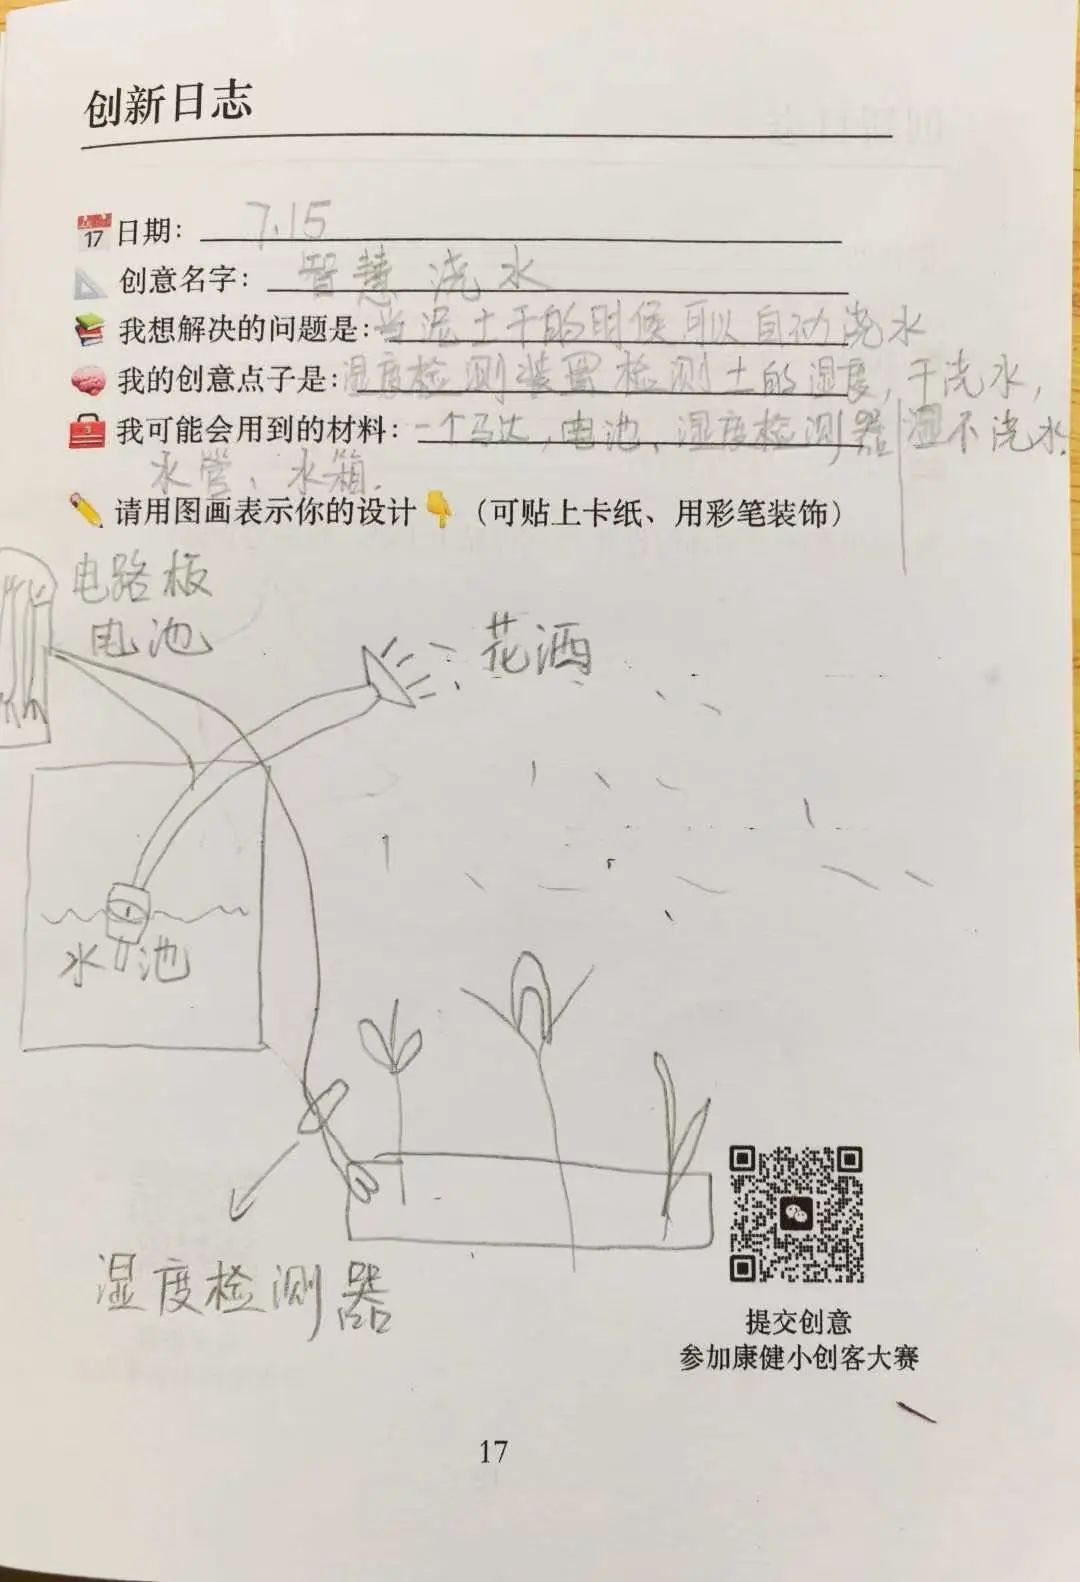 创新日志
17 日期：7.15
创意名字：智慧浇水
我想解决的问题是：当泥土干的时候可以自动浇水
我的创意点子是：湿度检测装置检测土的湿度，干浇水，
湿不浇水.
我可能会用到的材料：一个马达，电池、湿度检测器
水管、水箱.
请用图画表示你的设计（可贴上卡纸、用彩笔装饰）
电路板
电池
花洒
水池
湿度检测器
提交创意
参加康健小创客大赛
17